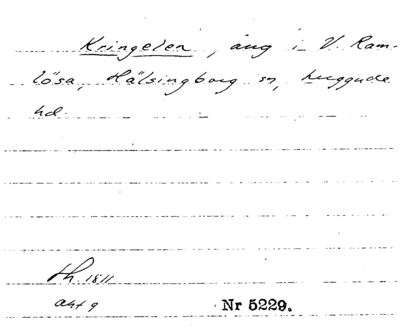 Kringelen, äng i V. Ram-
lösa, Hälsingborg sn, Luggude
hd.
1811
akt 9
Nr 5229.